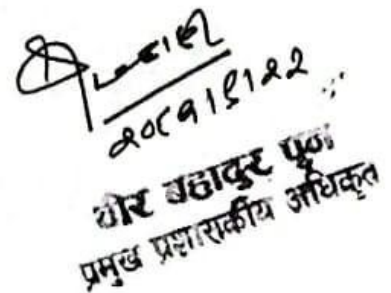 २०८१।९।२२
बहादुर पुन
प्रमुख प्रशासकीय अधिकृत